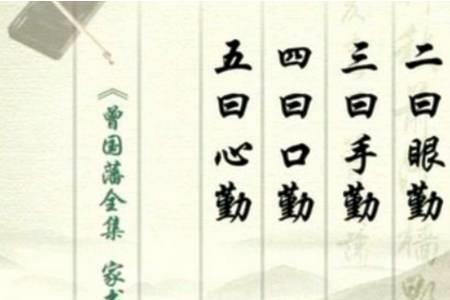 二曰眼勤
三曰手勤
四曰口勤
五曰心勤
《曾国藩全集 家书